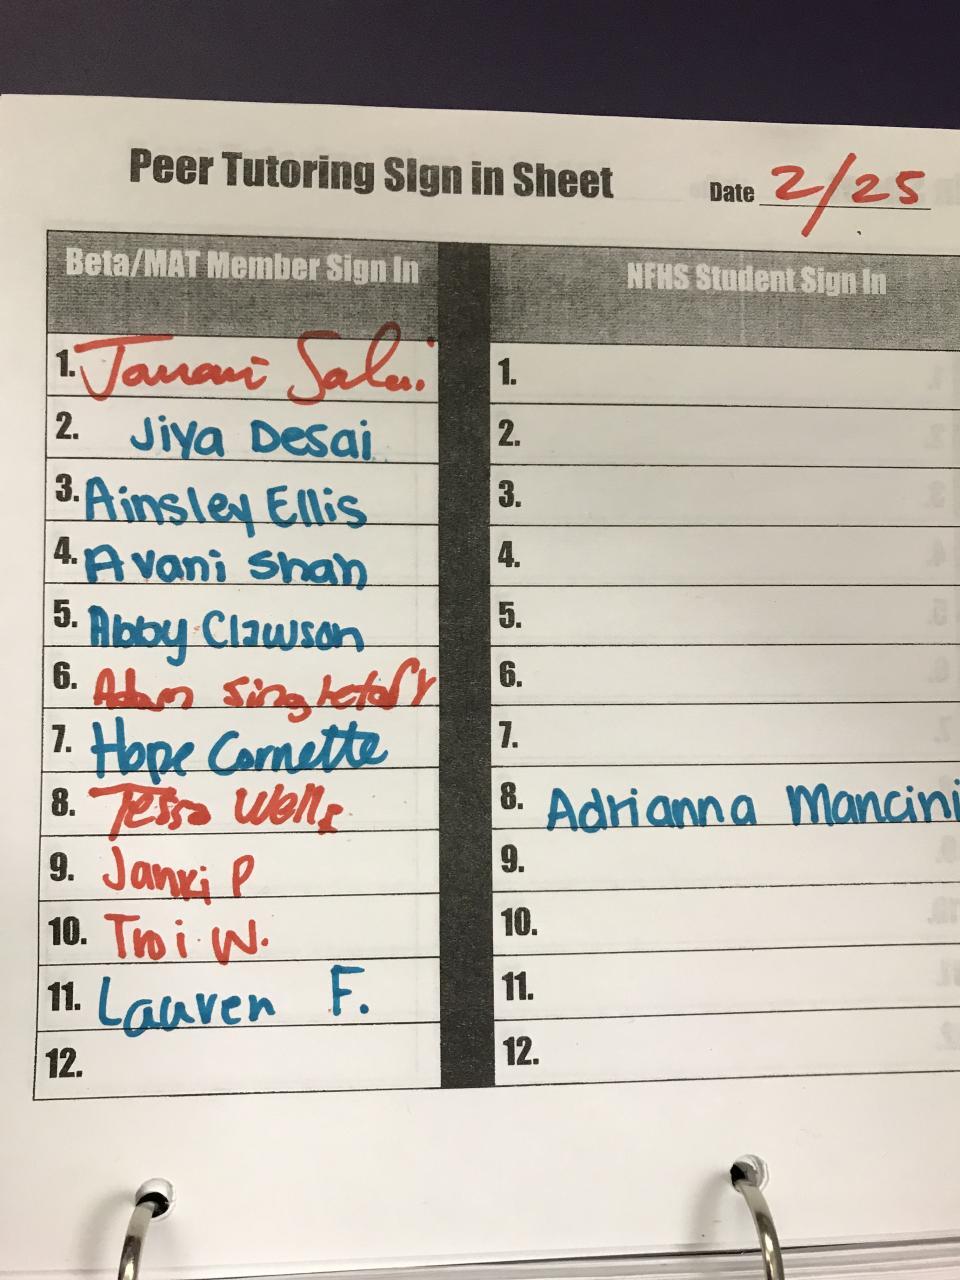 Peer Tutoring SIgn in Sheet
Date 2/25
Beta/MAT Member Sign In
NFHS Student Sign In
1. Janani Salu
1.
2. Jiya Desai
2.
3. Ainsley Ellis
3.
4. Avani Shah
4.
5. Abby Clawson
5.
6. Adam Singletary
6.
7. Hope Cornette
7.
8. Tessa Wells
8. Adrianna Mancini
9. Janki P
9.
10. Troi W.
10.
11. Lauren F.
11.
12.
12.